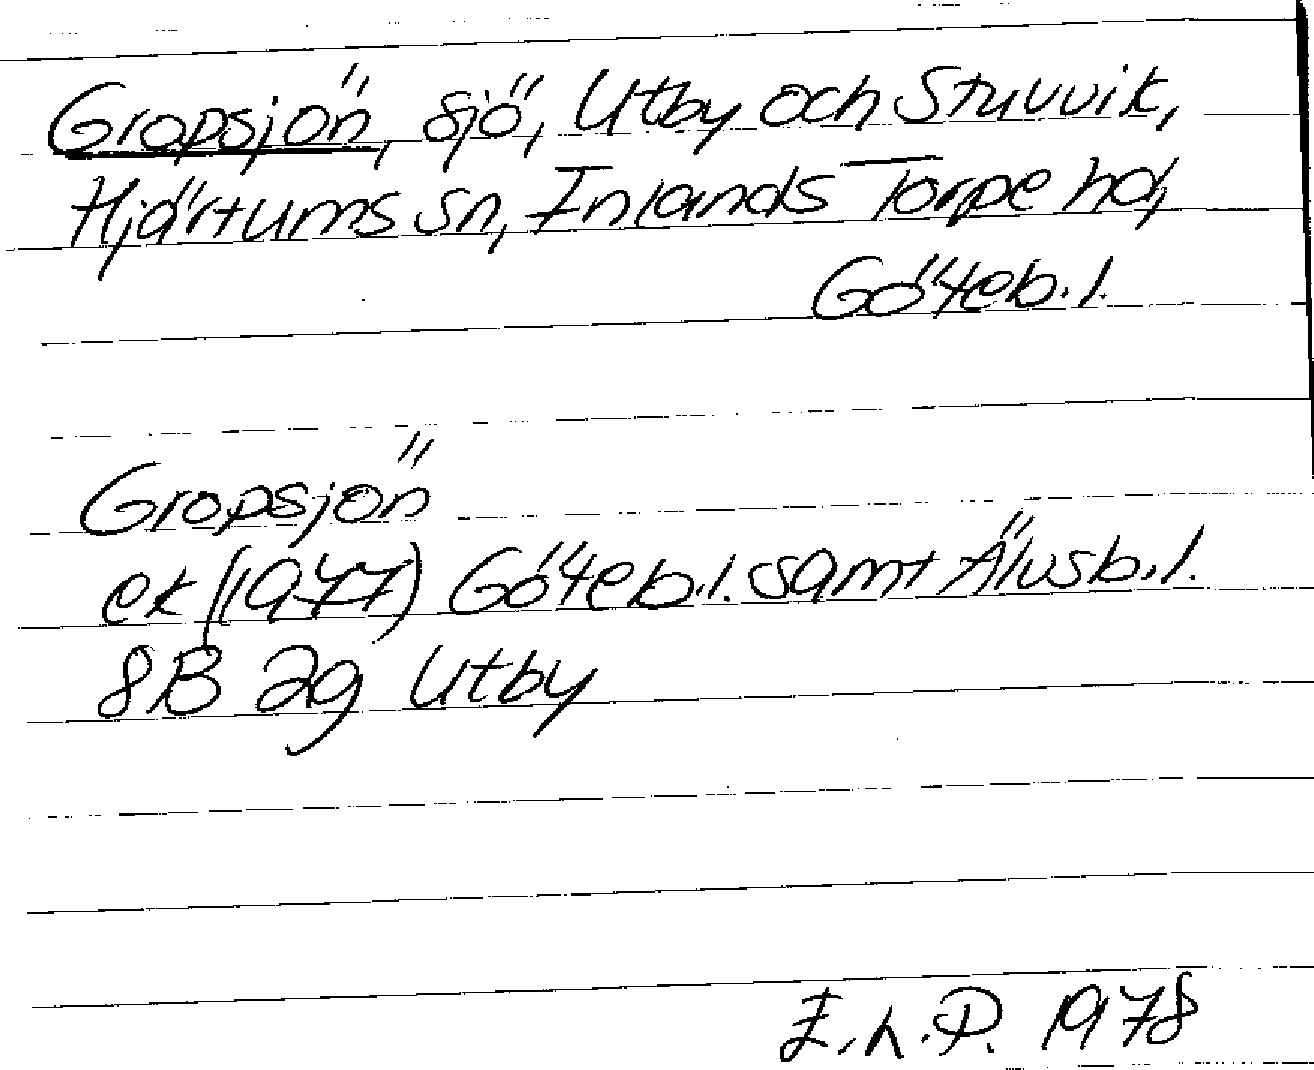 Gropsjön, sjö, Utby och Stuvvik,
Hjärtums sn, Inlands Torpe hd,
Göteb. l.
Gropsjön
ek (1977) Göteb. l. samt Älvsb. l.
8B 2g Utby
E. L. P. 1978